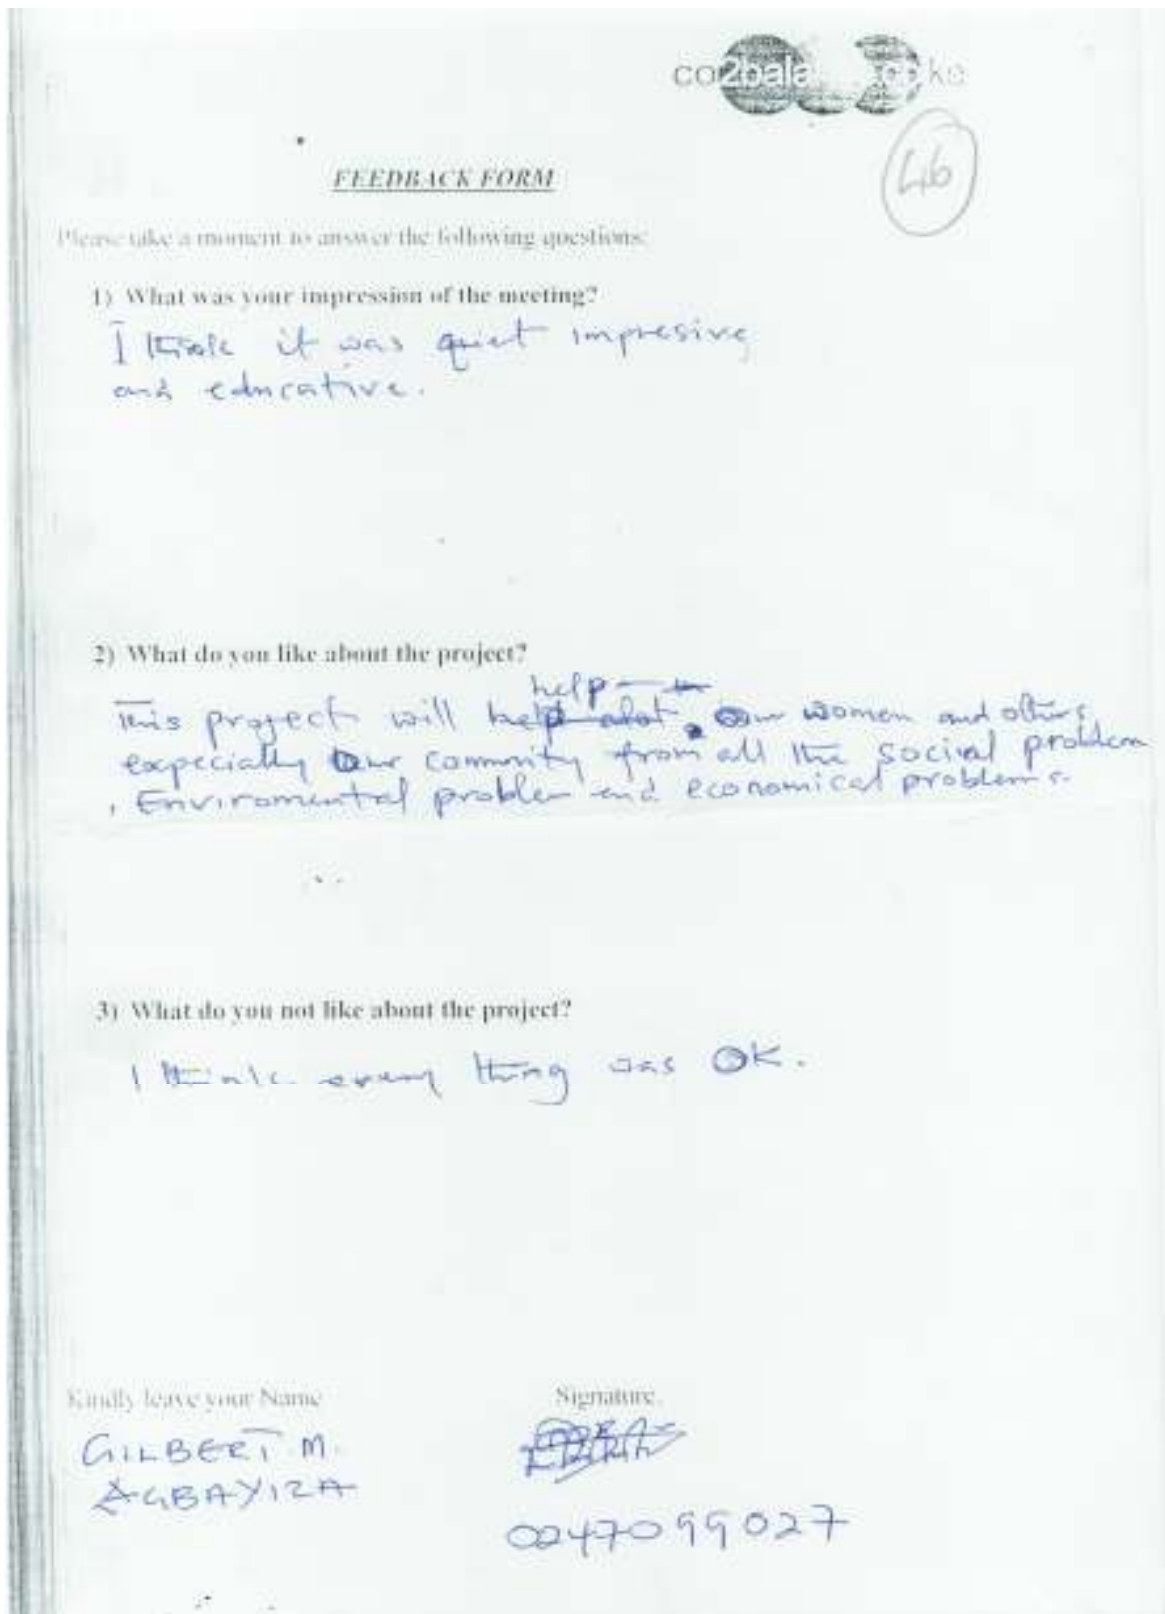 co2bala co ke
46
FEEDBACK FORM
Please take a moment to answer the following questions:
1) What was your impression of the meeting?
I think it was quiet impresive
and educative.
2) What do you like about the project?
help
This project will help our women and others
expecially our commnity from all the social problem
, Enviromental problem and economical problems.
3) What do you not like about the project?
I think every thing was OK.
Kindly leave your Name
Signature.
GILBERT M.
AGBAYIZA
0247099027